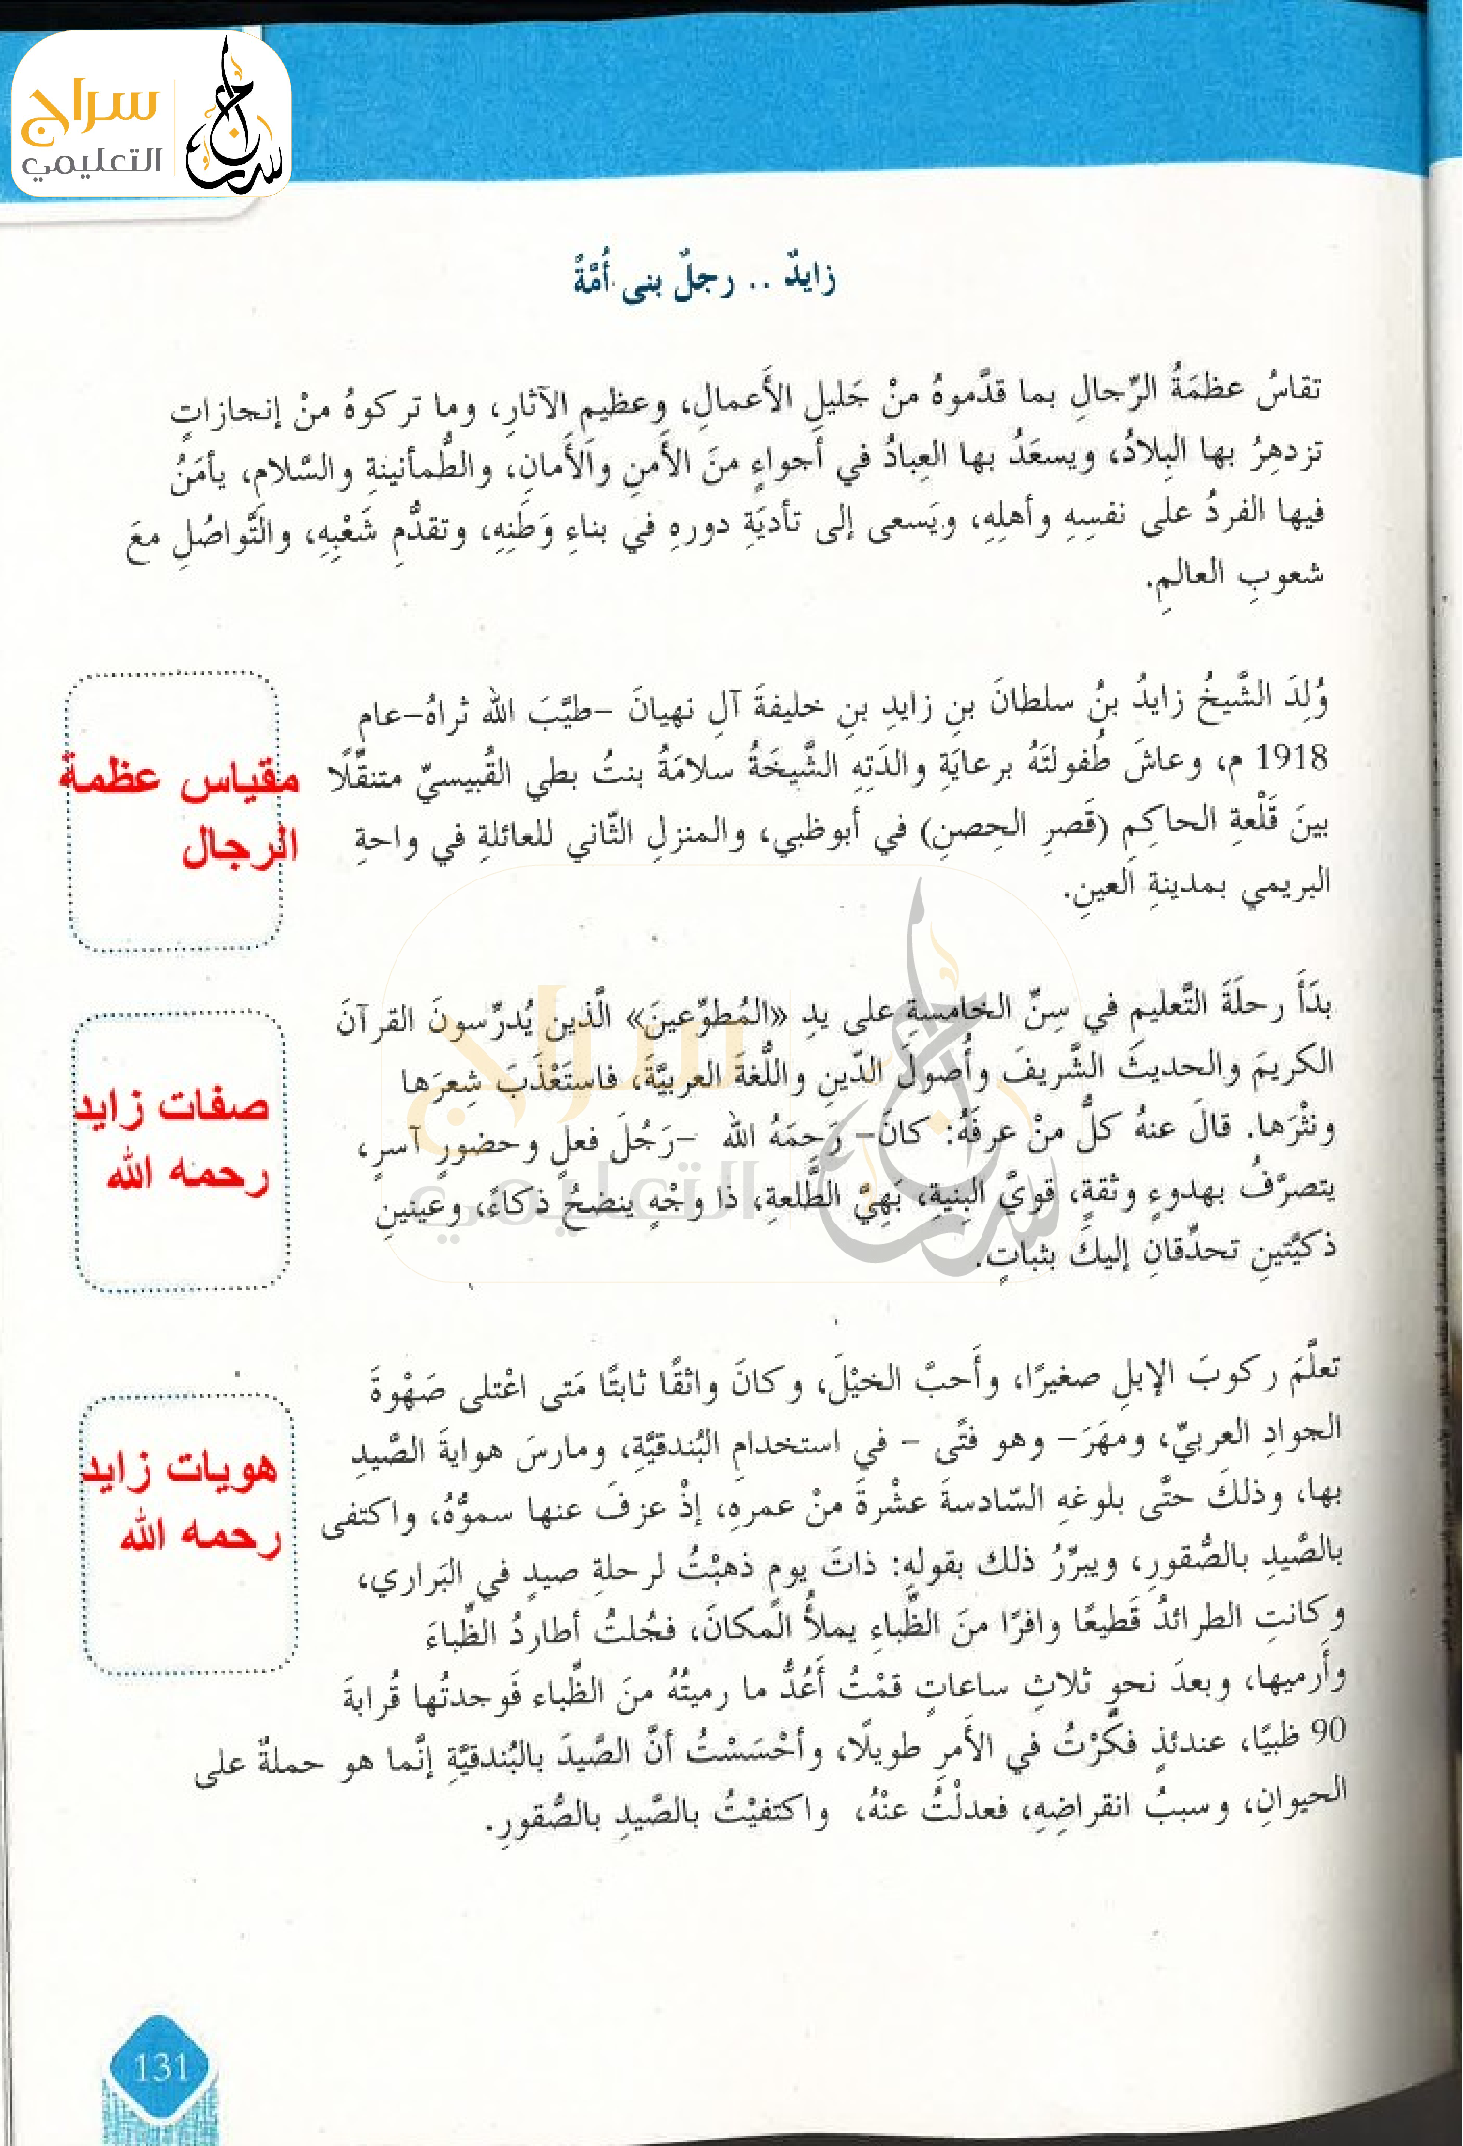 سراج
التعليمي
زايدٌ .. رجلٌ بنى أُمَّةً
تقاسُ عظمَةُ الرِّجالِ بما قدَّموهُ منْ جَليلِ الأَعمالِ، وعظيمِ الآثارِ، وما تركوهُ منْ إنجازاتٍ
تزدهِرُ بها البِلادُ، ويسعَدُ بها العِبادُ في أجواءٍ منَ الأَمنِ والأَمانِ، والطُّمأنينةِ والسَّلامِ، يأمَنُ
فيها الفردُ على نفسِهِ وأهلِهِ، ويَسعى إلى تأديَةِ دورِهِ في بناءِ وَطَنِهِ، وتقدُّمِ شَعْبِهِ، والتَّواصُلِ معَ
شعوبِ العالمِ.
وُلِدَ الشَّيخُ زايدُ بنُ سلطانَ بنِ زايدِ بنِ خليفةَ آلِ نهيانَ –طيَّبَ الله ثراهُ–عام
1918 م، وعاشَ طُفولتَهُ برعايَةِ والدَتِهِ الشَّيخَةُ سلامَةُ بنتُ بطي القُبيسيّ متنقّلًا
بينَ قَلْعةِ الحاكِمِ (قَصرِ الحِصنِ) في أبوظبي، والمنزلِ الثّاني للعائلةِ في واحةِ
البريمي بمدينةِ العينِ.
مقياس عظمة
الرجال
بدَأَ رحلَةَ التَّعليمِ في سِنِّ الخامسةِ على يدِ «المُطوِّعينَ» الَّذينَ يُدرِّسونَ القرآنَ
الكريمَ والحديثَ الشَّريفَ وأُصولَ الدّينِ واللُّغةَ العربيَّةَ، فاستَعْذَبَ شِعرَها
ونثْرَها. قالَ عنهُ كلُّ منْ عرفَهُ: كانَ– رَحِمَهُ الله –رَجُلَ فعلٍ وحضورٍ آسرٍ،
يتصرَّفُ بهدوءٍ وثقةٍ، قويَّ البِنيةِ، بَهِيَّ الطَّلعةِ، ذا وجْهٍ ينضحُ ذكاءً، وعينينِ
ذكيَّتينِ تحدِّقانِ إليكَ بثباتٍ.
صفات زايد
رحمه الله
تعلَّمَ ركوبَ الإبلِ صغيرًا، وأَحبَّ الخيْلَ، وكانَ واثقًا ثابتًا مَتى اعْتلى صَهْوةَ
الجوادِ العربيِّ، ومهَرَ– وهو فتًى – في استخدامِ البُندقيَّةِ، ومارسَ هوايةَ الصَّيدِ
بها، وذلكَ حتَّى بلوغهِ السّادسةَ عشْرةَ منْ عمرهِ، إذْ عزفَ عنها سموُّهُ، واكتفى
بالصَّيدِ بالصُّقورِ، ويبرِّرُ ذلك بقولهِ: ذاتَ يومٍ ذهبْتُ لرحلةِ صيدٍ في البَراري،
وكانتِ الطرائدُ قَطيعًا وافرًا منَ الظِّباءِ يملأُ المكانَ، فجُلتُ أطاردُ الظِّباءَ
وأَرميها، وبعدَ نحوِ ثلاثِ ساعاتٍ قمْتُ أَعُدُّ ما رميتُهُ منَ الظِّباء فَوجدتُها قُرابةَ
90 ظبيًا، عندئذٍ فكَّرْتُ في الأَمرِ طويلًا، وأحْسَسْتُ أنَّ الصَّيدَ بالبُندقيَّةِ إنَّما هو حملةٌ على
الحيوانِ، وسببُ انقراضِهِ، فعدلْتُ عنْهُ، واكتفيْتُ بالصَّيدِ بالصُّقورِ.
هويات زايد
رحمه الله
131